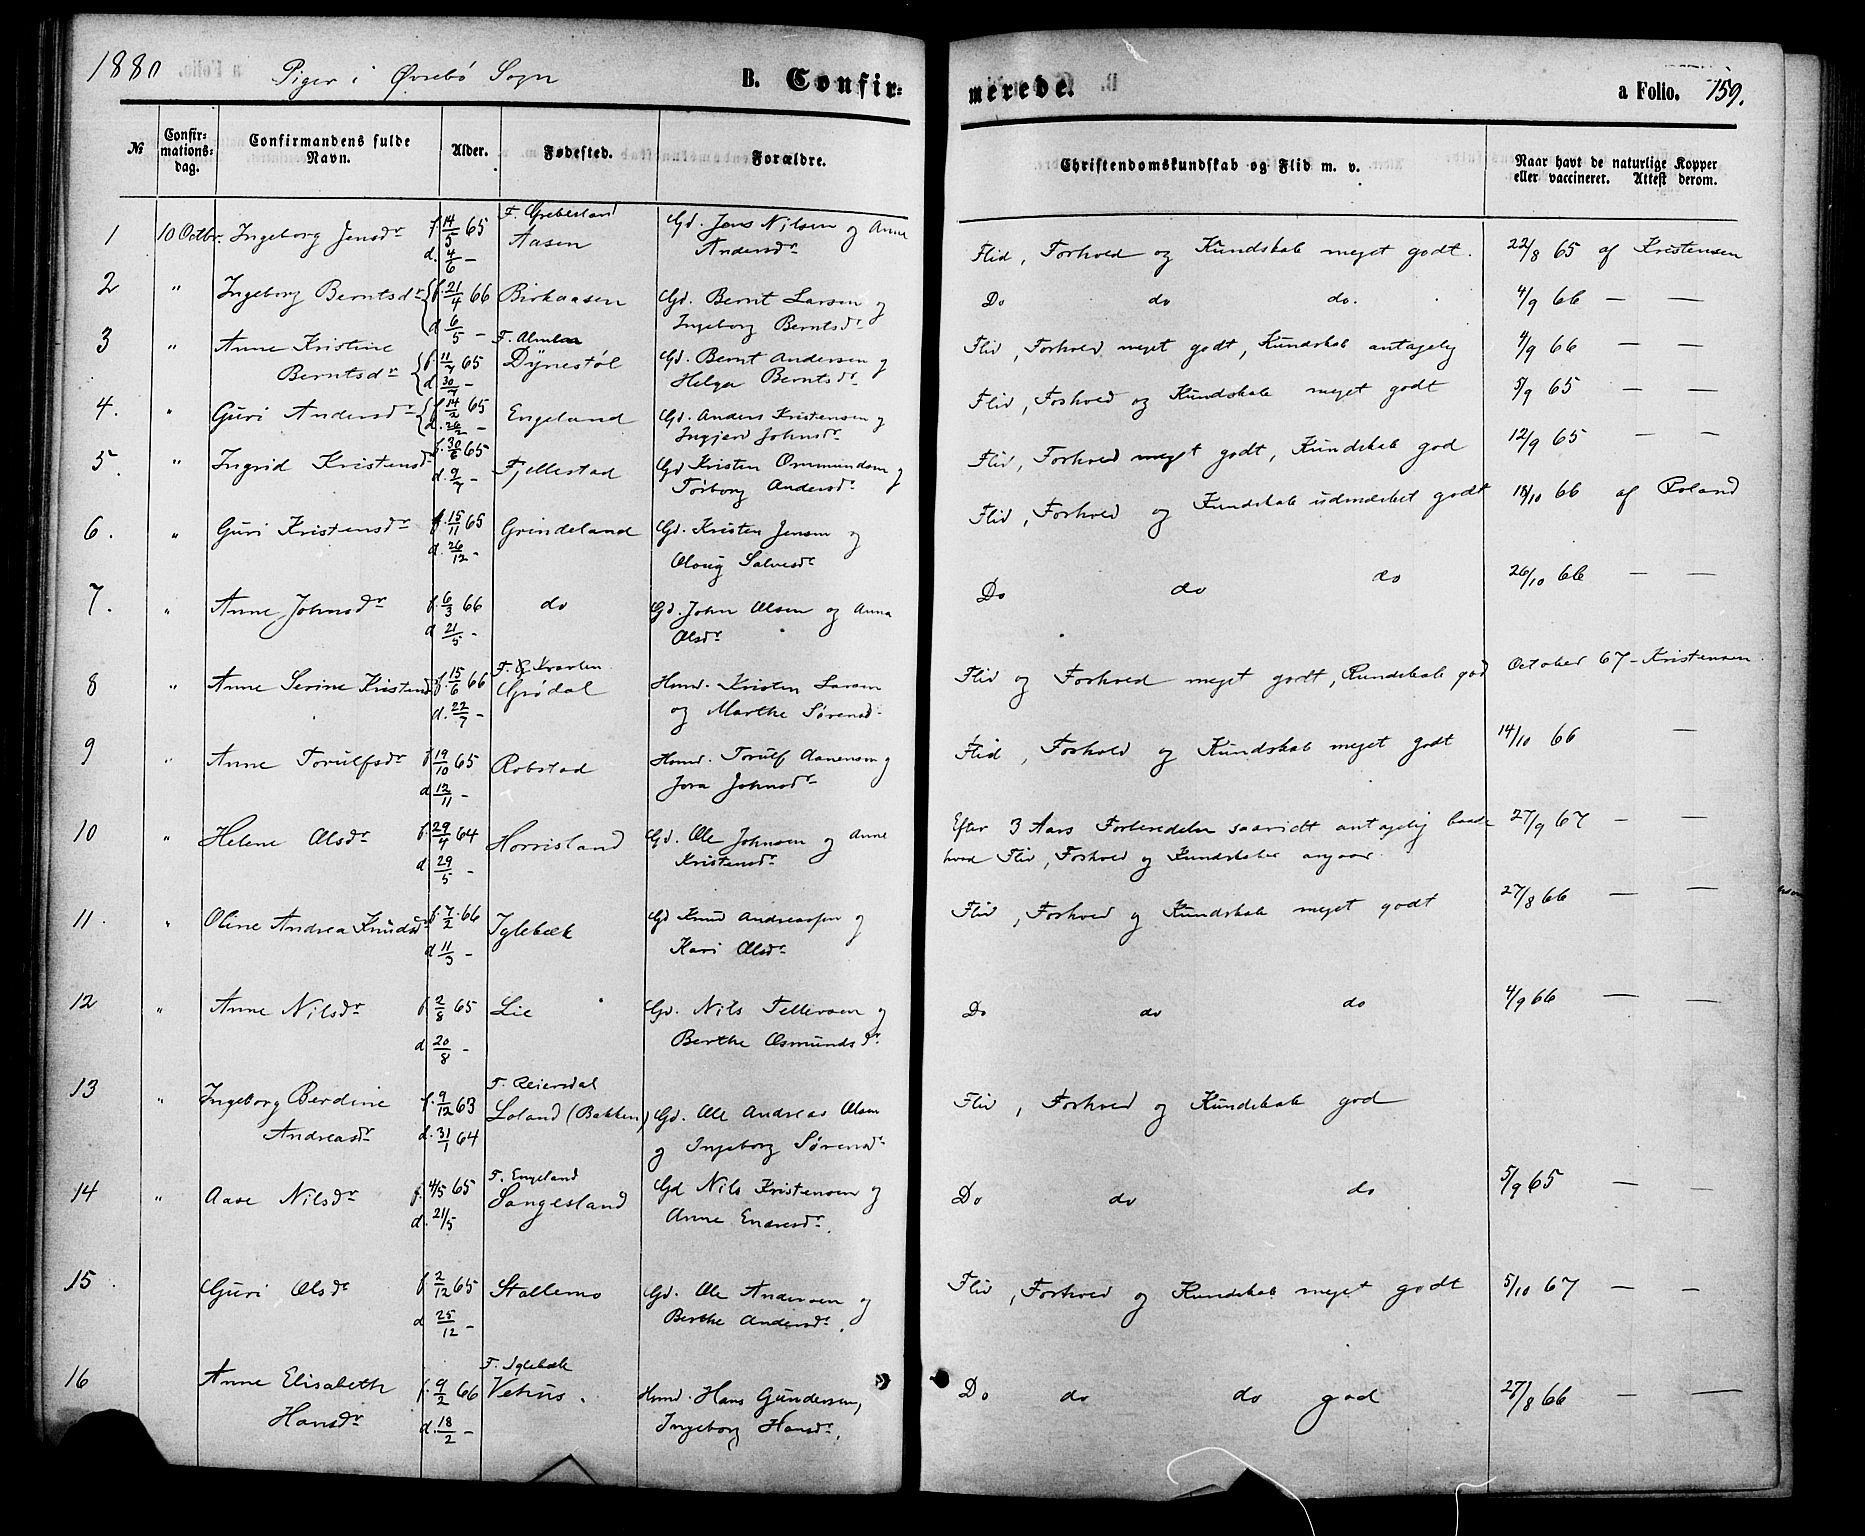 1880 Piger i Øvrebø Sogn B. Confir= merede. a Folio. 159.
№ Confir=mations=dag. Confirmandens fulde Navn. Alder. Fødested. Forældre. Christendomskundskab og Flid m. v. Naar havt de naturlige Kopper eller vaccineret. Attest derom.
1 10 Octbr. Ingeborg Jensdr f. 14/5 65 d. 4/6 – Aasen Gd. Jens Nilsen og Anne Andersdr Flid, Forhold og Kundskab meget godt. 22/8 65 af Kristensen
2 " Ingeborg Berntsdr f. 21/4 66 d 6/5 – Birkaasen Gd. Bernt Larsen og Ingeborg Berntsdr Do do do. 4/9 66 — —
3 " Anne Kristine Berntsdr f. 11/7 65 d 30/7 – Dÿnestøl Gd. Bernt Andersen og Helga Berntsdr Flid, Forhold meget godt, Kundskab antagelig 4/9 66 — —
4. " Guri Andersdr f. 14/2 65 d. 26/2 – Engeland Gd. Anders Kristensen og Ingjerd Johnsdr Flid, Forhold og Kundskab meget godt 5/9 65 — —
5. " Ingrid Kristensdr f. 30/6 65 d. 2/7 – Fjellestad Gd Kristen Ommundsen og Torborg Andersdr Flid, Forhold meget godt, Kundskab god 12/9 65 — —
6. " Guri Kristensdr f. 15/11 65 d. 26/12 – Grindeland Gd. Kristen Jensen og Oloug Salvesdr Flid, Forhold og Kundskab udmærket godt 18/10 66 af Roland
7. " Anne Johnsdr f. 6/3 66 d 21/5 – do Gd. John Olsen og Anna Olsdr Do do do 26/10 66 — —
8 " Anne Serine Kristensd f. 15/6 66 d. 22/7 – Grødal Husmd. Kristen Larsen og Marthe Sørensd. Flid og Forhold meget godt, Kundskab god October 67 – Kristensen
9 " Anne Torulfsdr f 19/10 65 d 12/11 – Robstad Husmd. Torulf Aanensen og Jora Johnsdr Flid, Forhold og Kundskab meget godt 14/10 66 —
10 " Helene Olsdr f. 29/4 64 d 29/5 – Horrisland Gd. Ole Johnsen og Anne Kristensdr Efter 3 Aars Forberedelse saavidt antagelig baade hvad Flid, Forhold og Kundskaber angaar. 27/9 67 — —
11. " Oline Andrea Knudsdr f. 7/2 66 d 11/3 – Iglebæk Gd Knud Andreassen og Kari Olsdr Flid, Forhold og Kundskab meget godt 27/8 66 — —
12 " Anne Nilsdr f. 2/8 65 d 20/8 – Lie Gd. Nils Tellevsen og Berthe Osmundsdr Do do do 4/9 66 — —
13 " Ingeborg Berdine Andreasdr f. 9/12 63 d. 31/1 64 F. Reiersdal Loland (Bakken) Gd. Ole Andreas Olsen og Ingeborg Sørensdr Flid, Forhold og Kundskab god
14 " Aase Nilsdr f. 4/5 65 d. 21/5 F. Engeland Sangesland Gd Nils Kristensen og Anne Enersdr. Do do do 5/9 65 — —
15. Guri Olsdr f. 2/12 65 d 25/12 – Stallemo Gd. Ole Andersen og Berthe Andersdr. Flid, Forhold og Kundskab meget godt 5/10 67 — —
16 Anne Elisabeth Hansdr f. 9/2 66 d. 18/2 – F. Iglebæk Vehus. Husmd. Hans Gundersen, Ingeborg Hansdr. Do do do god 27/8 66 — —